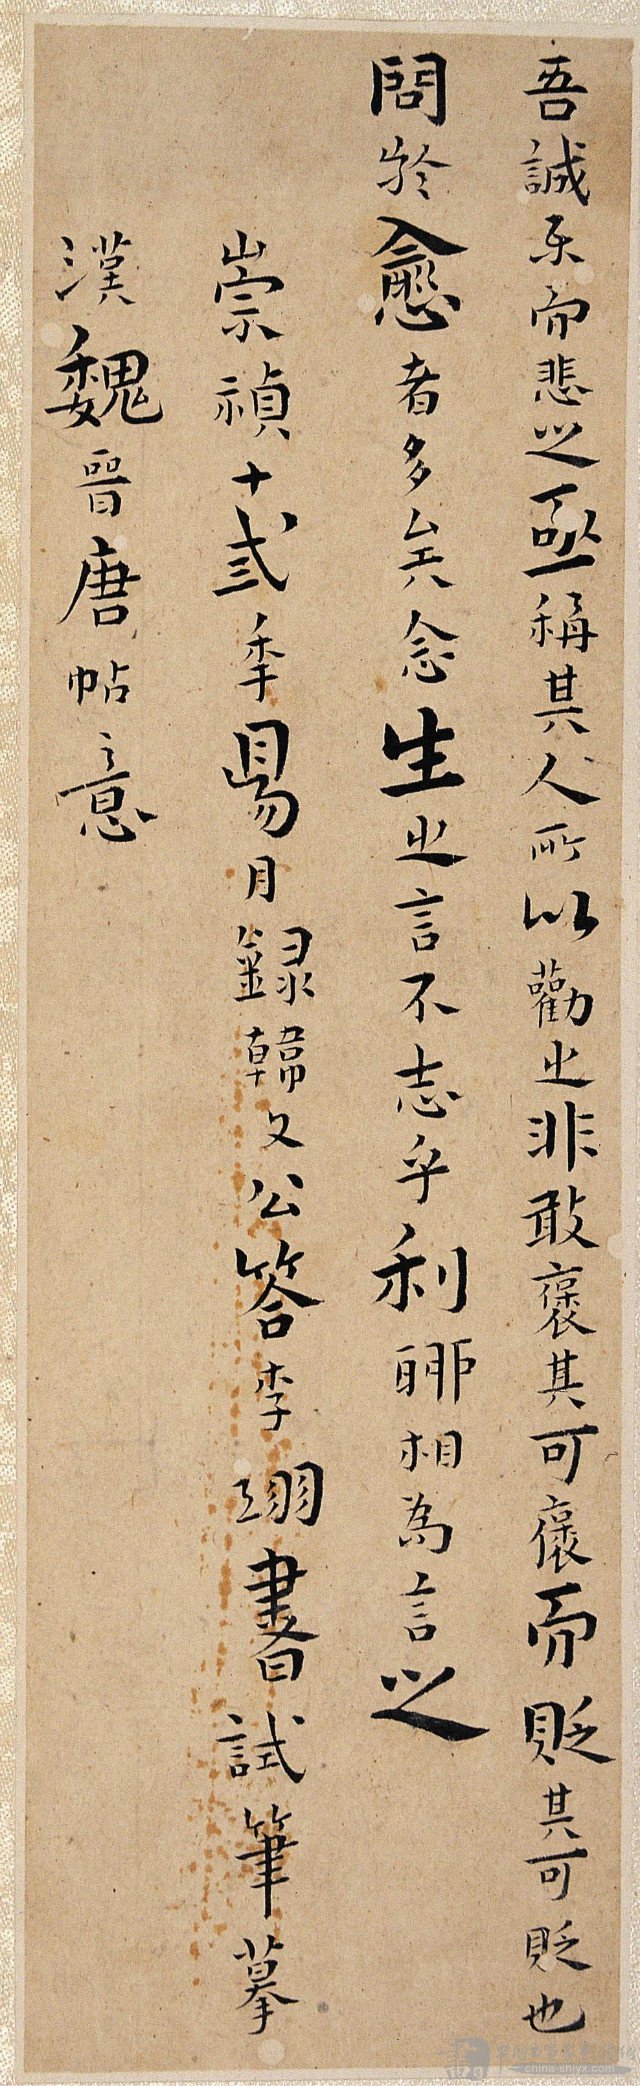 吾誠樂而悲之亟稱其人所以勸之非敢褒其可褒而貶其可貶也
問於愈者多矣念生之言不志乎利聊相為言之
崇禎十弍年昜月錄韓文公答李翊書試筆摹
漢魏晉唐帖意
china-shiyx.com